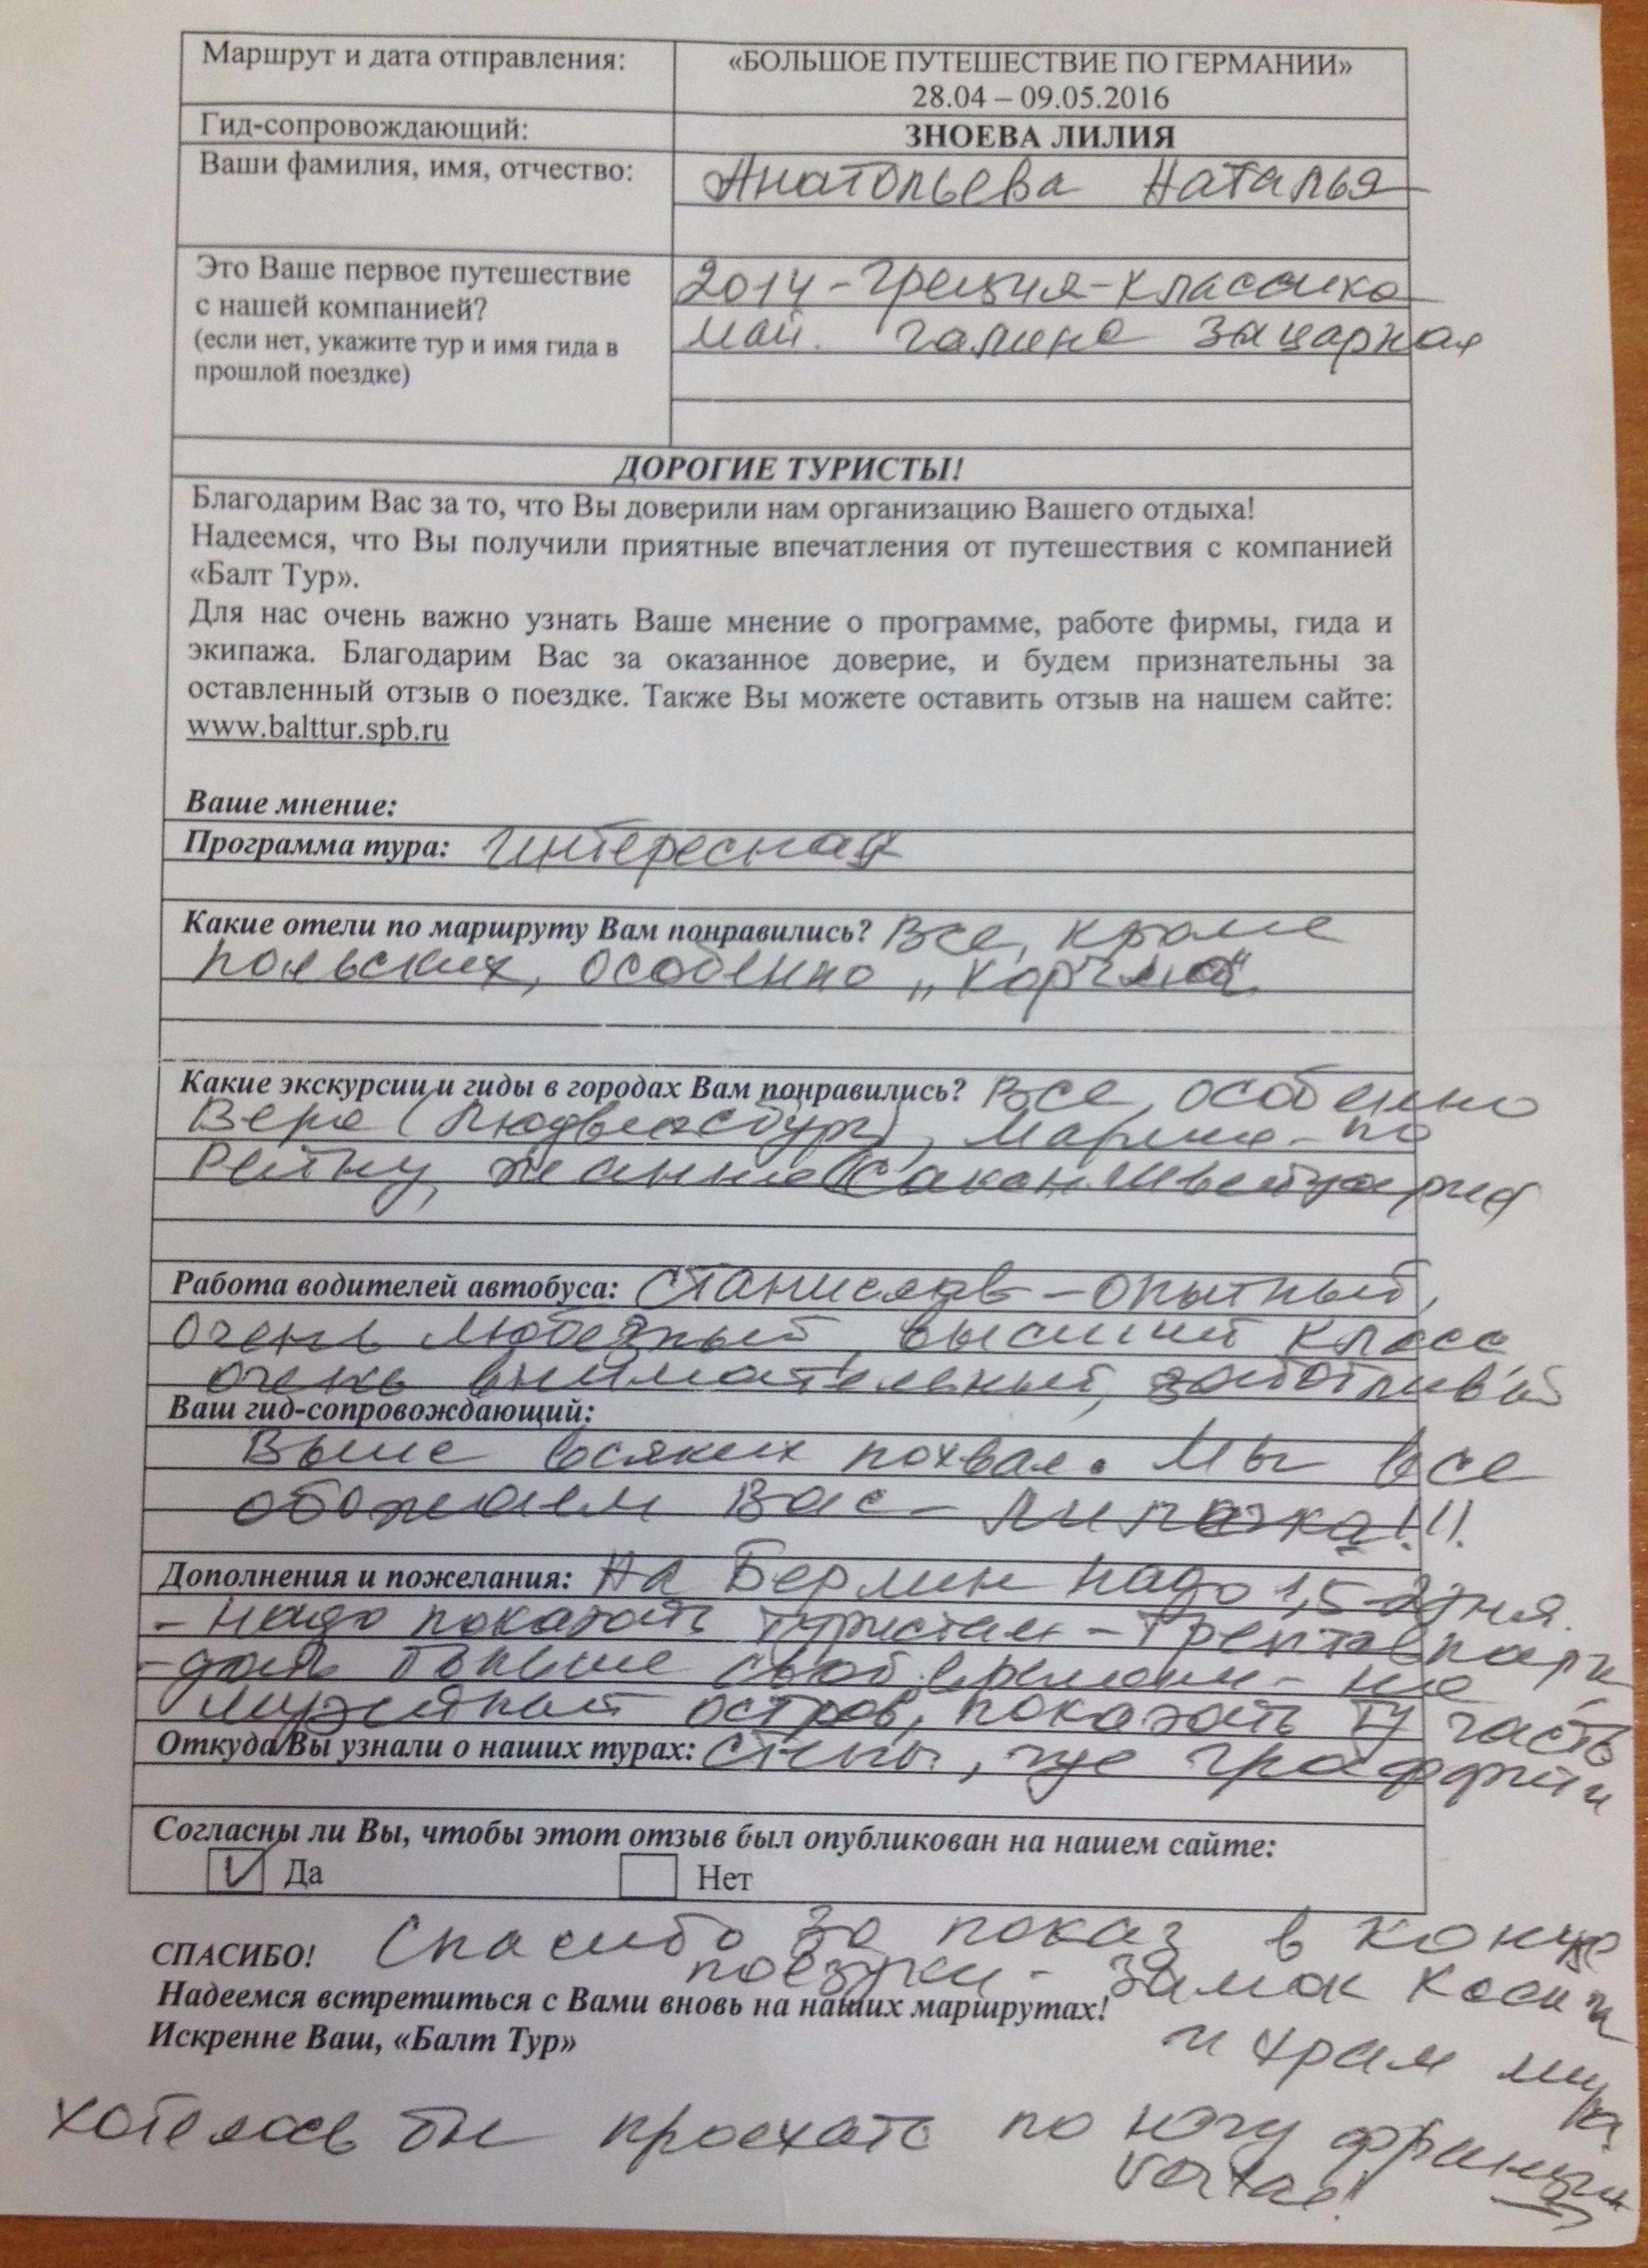 Маршрут и дата отправления:
«БОЛЬШОЕ ПУТЕШЕСТВИЕ ПО ГЕРМАНИИ»
28.04 – 09.05.2016
Гид-сопровождающий:
ЗНОЕВА ЛИЛИЯ
Ваши фамилия, имя, отчество:
Анатольева Наталья
Это Ваше первое путешествие
с нашей компанией?
(если нет, укажите тур и имя гида в
прошлой поездке)
2014 - Греция - классика
май. Галина Зацарная
ДОРОГИЕ ТУРИСТЫ!
Благодарим Вас за то, что Вы доверили нам организацию Вашего отдыха!
Надеемся, что Вы получили приятные впечатления от путешествия с компанией
«Балт Тур».
Для нас очень важно узнать Ваше мнение о программе, работе фирмы, гида и
экипажа. Благодарим Вас за оказанное доверие, и будем признательны за
оставленный отзыв о поездке. Также Вы можете оставить отзыв на нашем сайте:
www.balttur.spb.ru
Ваше мнение:
Программа тура: интересная
Какие отели по маршруту Вам понравились? Все, кроме
польских, особенно „Корчма"
Какие экскурсии и гиды в городах Вам понравились? Все, особенно
Вера (Людвигсбург), Марина - по
Рейну, Жанна (Сакон. Швейцария)
Работа водителей автобуса: Станислав - опытный,
очень любезный, высший класс
очень внимательный, заботливый
Ваш гид-сопровождающий:
Выше всяких похвал. Мы все
обожаем Вас - Лилечка!!!
Дополнения и пожелания: На Берлин надо 1,5-2 дня.
- Надо показать туристам - Трептов парк
- дать больше своб. времени - на
музейный остров, показать ту часть
Откуда Вы узнали о наших турах: стены, где граффити
Согласны ли Вы, чтобы этот отзыв был опубликован на нашем сайте:
Да Нет
СПАСИБО! Спасибо за показ в конце
поездки - замок Ксенж
Надеемся встретиться с Вами вновь на наших маршрутах!
и храм мира.
Искренне Ваш, «Балт Тур»
Хотелось бы проехать по югу Франции